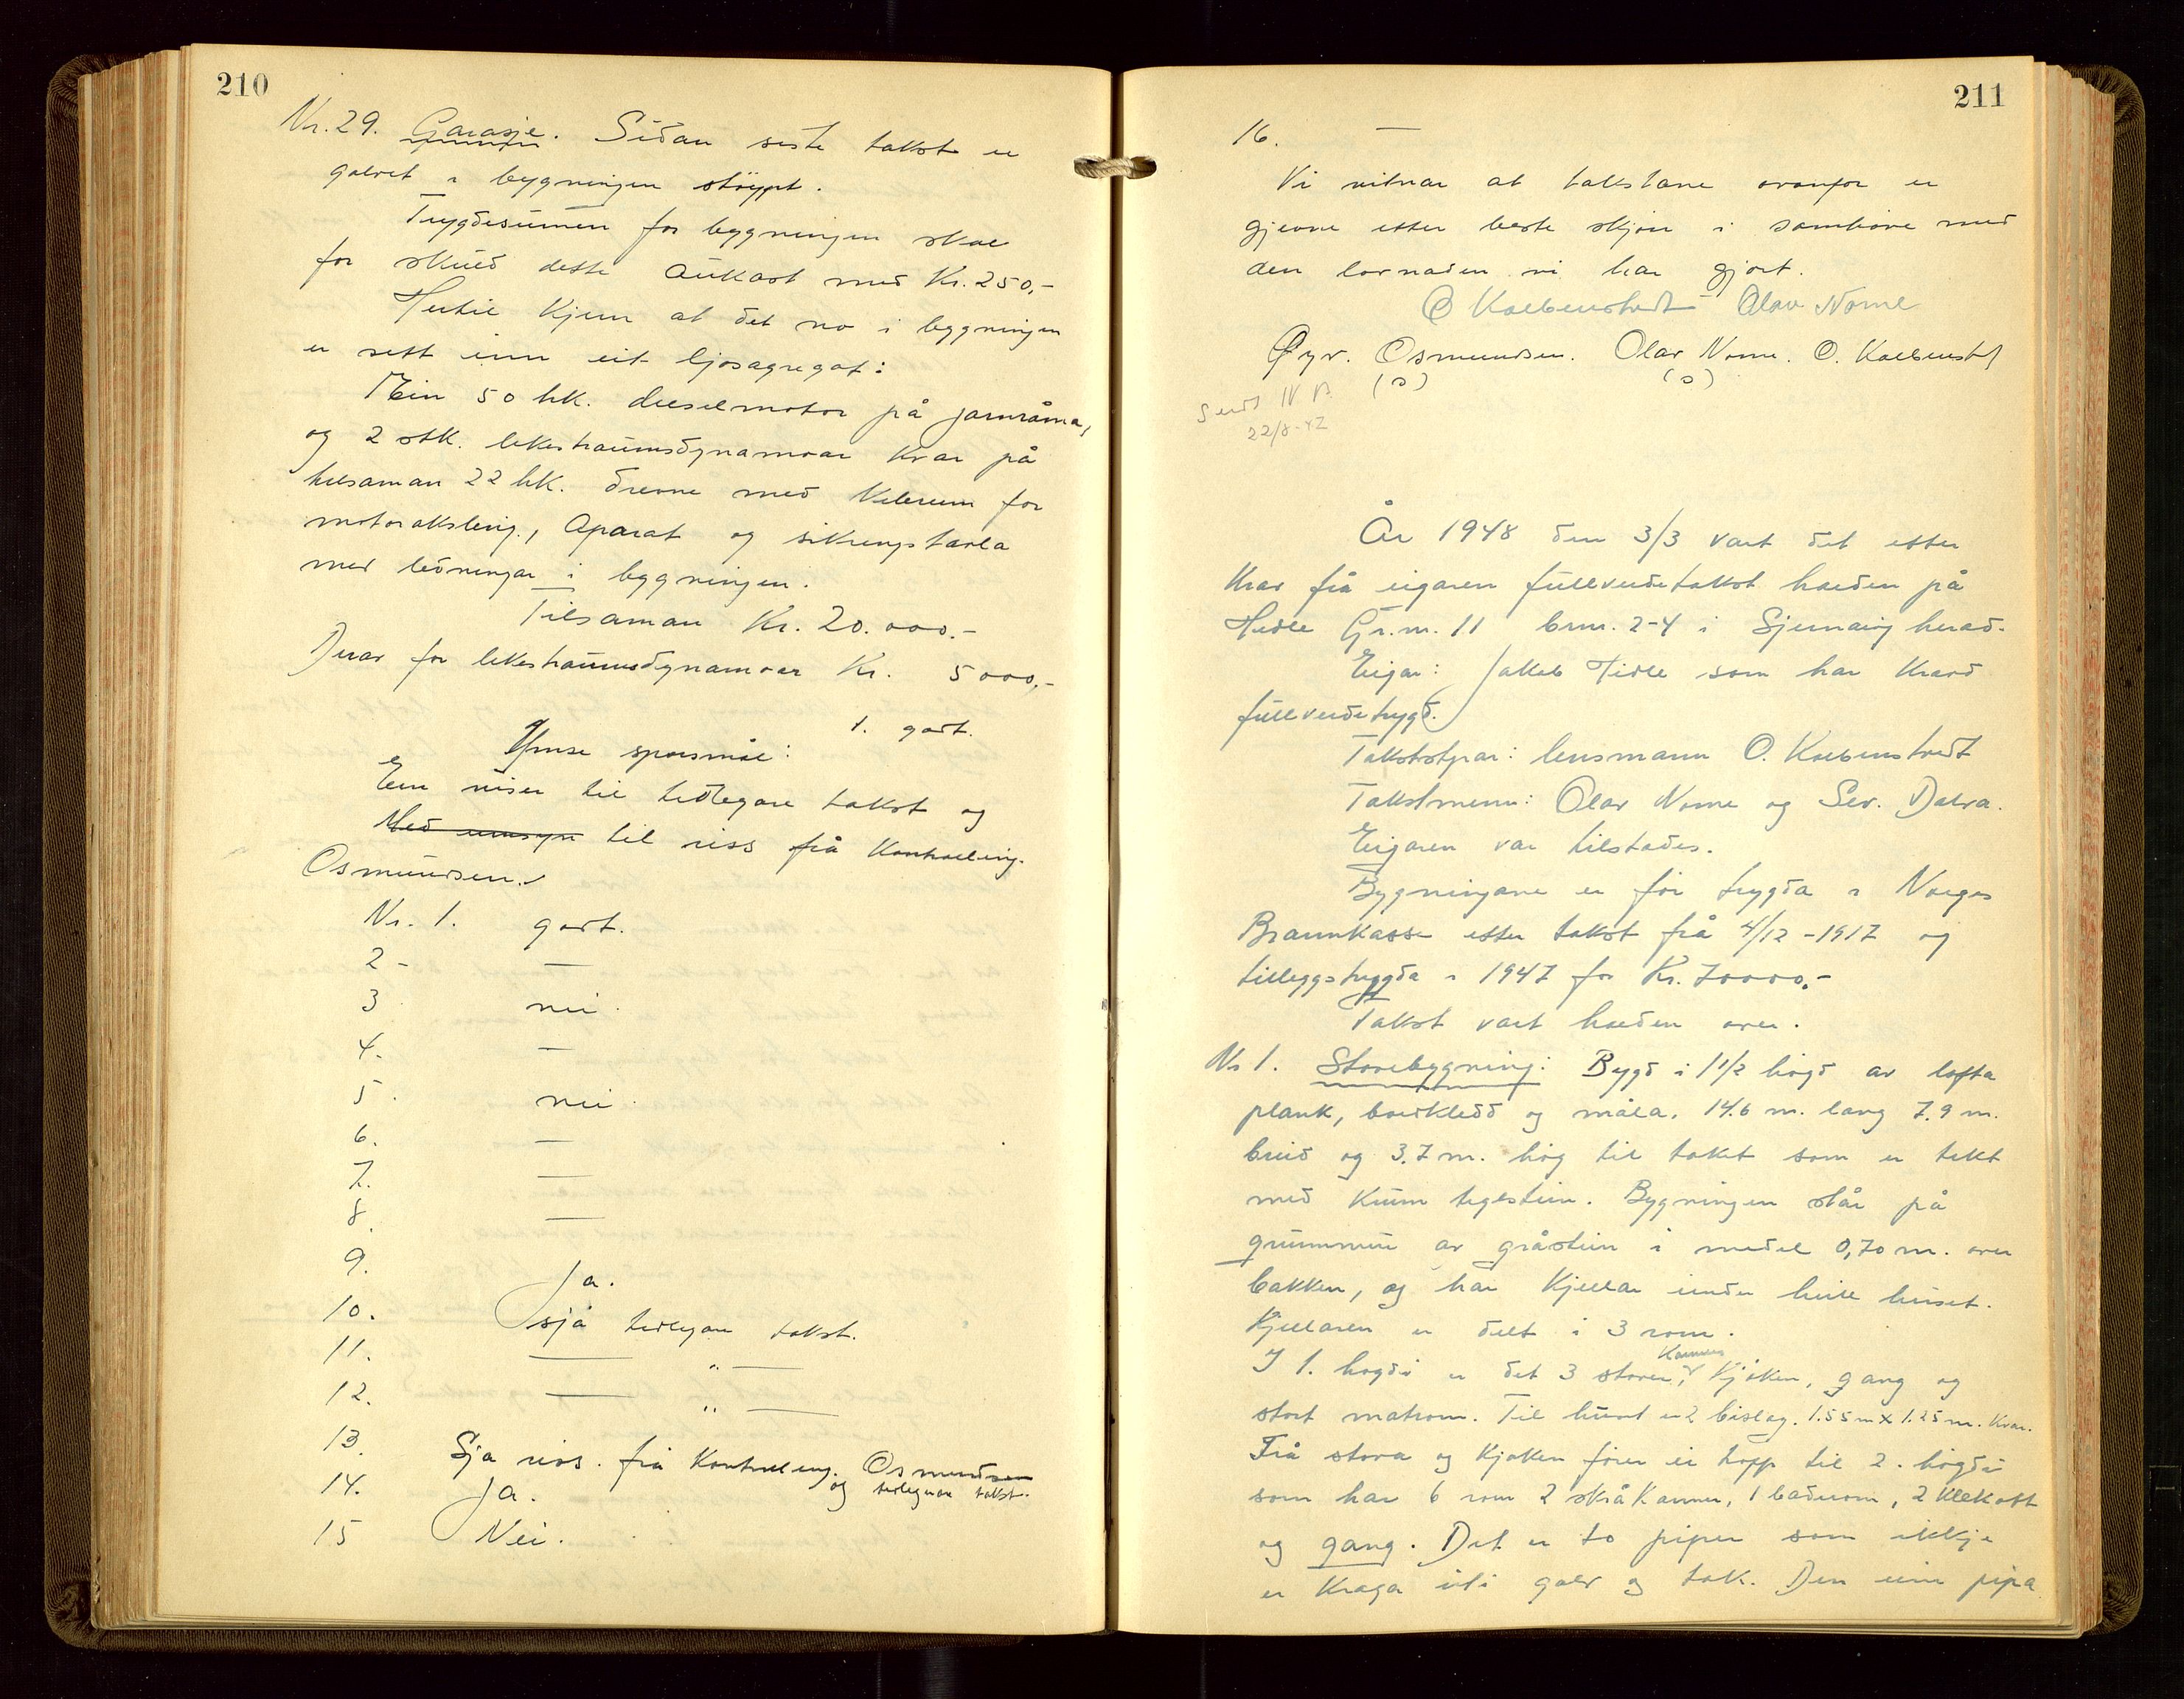 210
Nr. 29. Garasje. Sidan siste takst er
golvet i bygningen støypt.
Trygdesumen for bygningen skal
for skuld dette aukast med Kr. 250,-
Hertil kjem at det no i bygningen
er sett inn eit ljosagregat:
Ein 50 hk. dieselmotor på jarnråma,
og 2 stk. likestraumsdynamoar kvar på
tilsaman 22 hk. drevne med kilereim for
motoraksling, Aparat og sikringstavla
med leidningar i bygningen.
Tilsaman Kr. 20.000.-
Derav for likestraumsdynamoar Kr. 5000,-
1. godt.
Ymse spørsmål:
Ein viser til tidlegare takst og
Med umsyn til riss frå Kontrolling.
Osmundsen.
Nr. 1. godt.
2 - —
3 nei.
4. —
5. nei.
6. —
7. —
8. —
9. Ja.
10. sjå tidlegare takst.
11. — " —
12. — " —
13. Sjå riss. frå Kontrolling. Osmundsen
og tidlegare takst.
14. Ja.
15 Nei.
211
16. —
Vi vitnar at takstane ovanfor er
gjevne etter beste skjøn i samhøve med
den lovnaden vi har gjort.
O Kolbenstvedt Olav Nome
Øyv. Osmundsen. Olav Nome. O. Kolbenstv
(s) (s)
Sendt N B
22/8-42
År 1948 den 3/3 vart det etter
krav frå eigaren fullverdetakst halden på
Hidle Gr.nr. 11 brnr. 2-4 i Sjernarøy herad.
Eigar: Jakob Hidle som har kravd
fullverdetrygd.
Takststyrar: lensmann O. Kolbenstvedt
Takstmenn: Olav Nome og Sev. Dalva.
Eigaren var tilstades.
Bygningane er før trygda i Norges
Brannkasse etter takst frå 4/12-1917 og
tilleggstrygda i 1947 for Kr. 70000.-
Takst vart halden over.
Nr 1. Stovebygning: Bygd i 1 1/2 høgd av lafta
plank, bordkledd og måla. 14.6 m. lang 7.9 m.
breid og 3.7 m. høg til taket som er tekt
med Krum teglstein. Bygningen står på
grunnmur av gråstein i medel 0,70 m. over
bakken, og har kjellar under heile huset.
Kjellaren er delt i 3 rom.
I 1. høgdi er det 3 stover, kammers, kjøken, gang og
stort matrom. Til huset er 2 bislag. 1.55 m x 1.25 m. kvar.
Frå stova og kjøken fører ei tropp til 2. høgdi
som har 6 rom 2 skråkammer, 1 baderom, 2 klekott
og gang. Det er to piper som ikkje
er kraga uti golv og tak. Den eine pipa